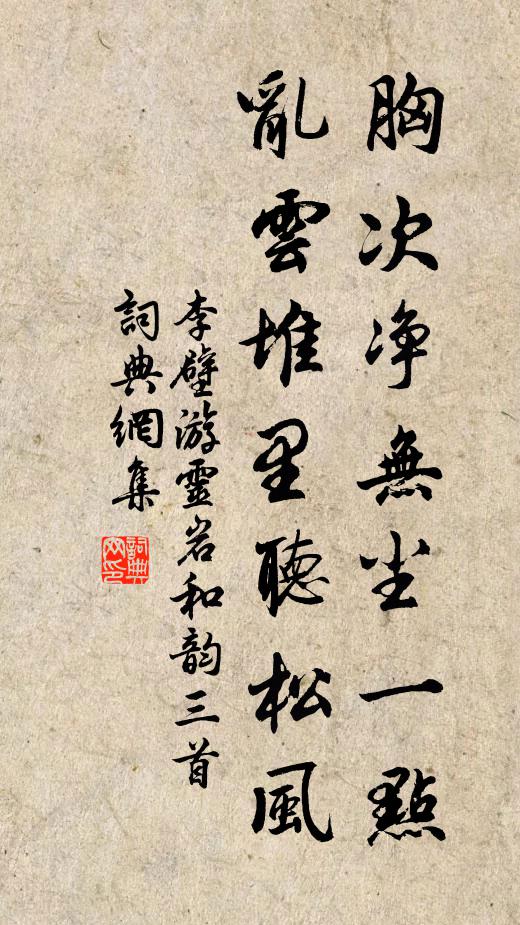 胸次净無尘一點
亂雲堆里聽松風
李壁游靈岩和韵三首
詞典網集
詞典
网印